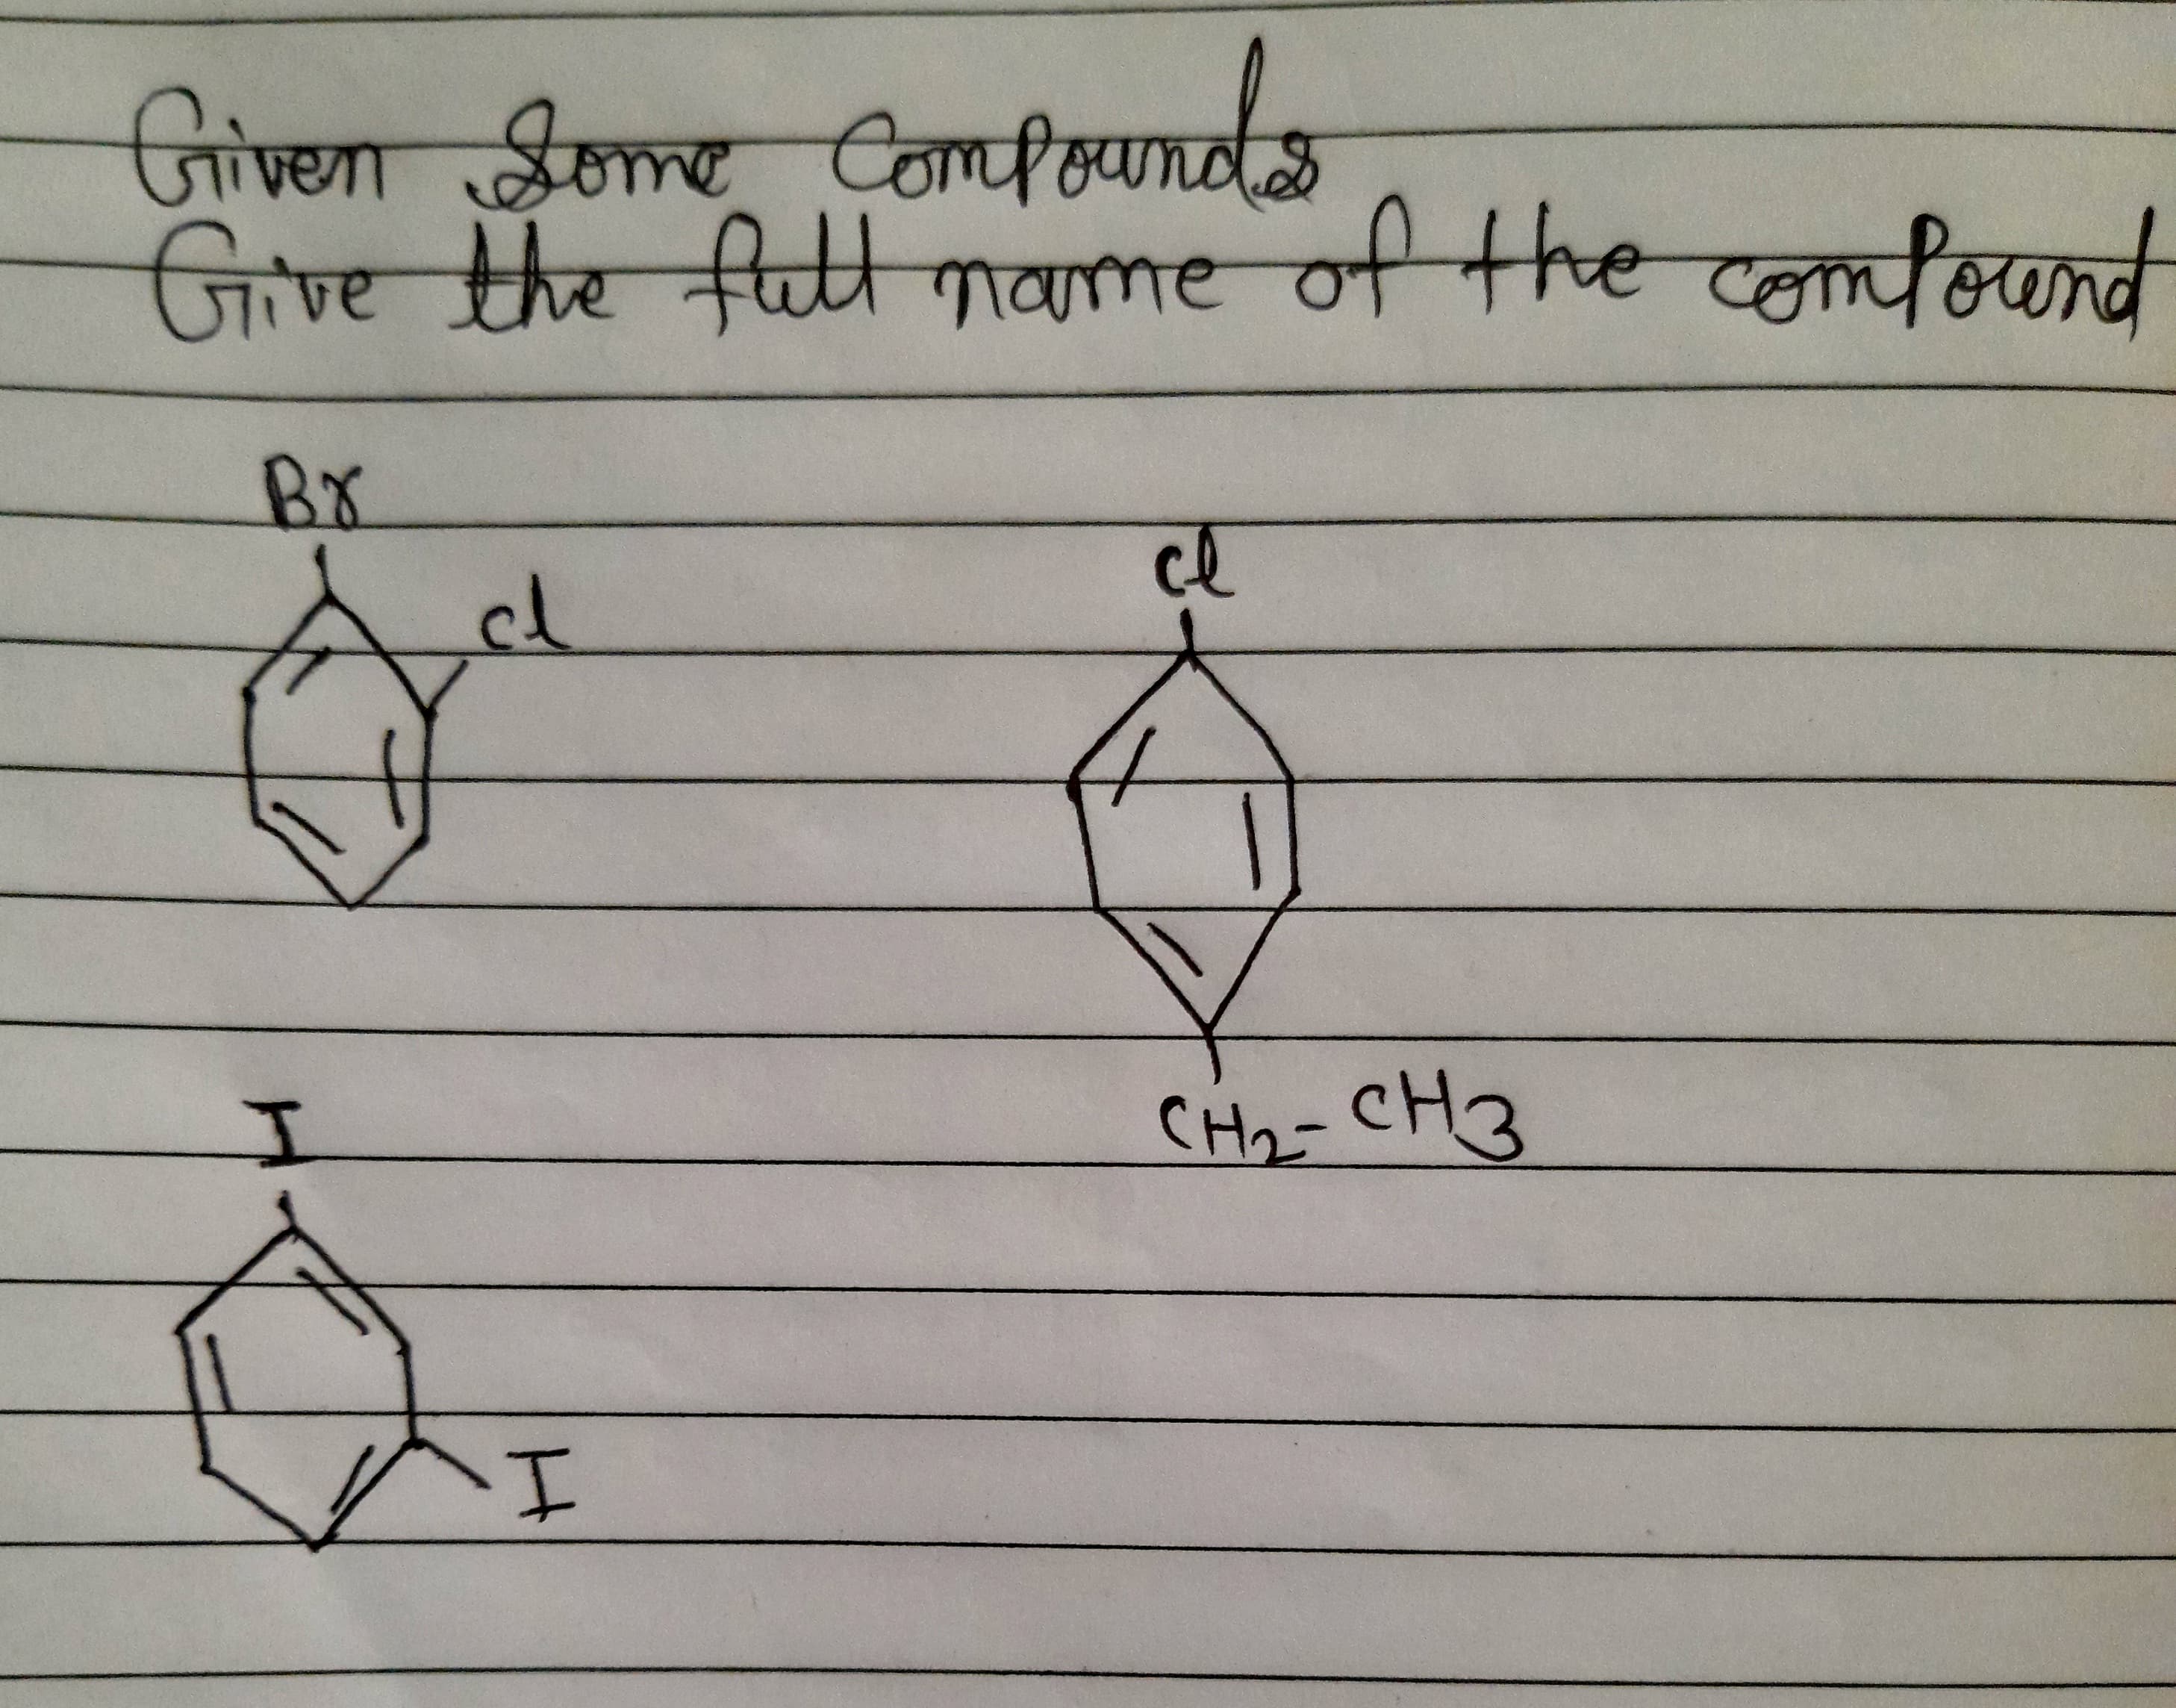 Given Some Compounds
Give the full name of the compound
Br
Cl
Cl
CH2-CH3
I
I